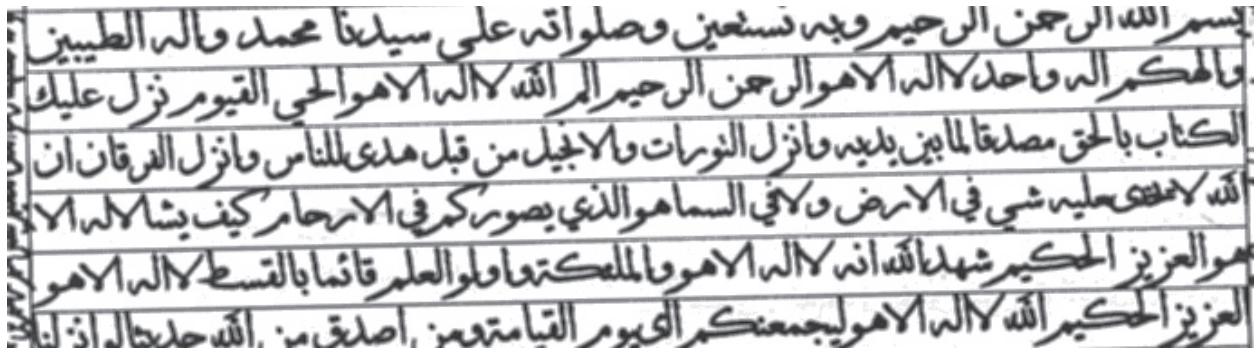 بسم الله الرحمن الرحيم وبه نستعين وصلواته على سيدنا محمد واله الطيبين
والهكم اله واحد لا اله الا هو الرحمن الرحيم الم الله لا اله الا هو الحي القيوم نزل عليك
الكتاب بالحق مصدقا لما بين يديه وانزل التورات والانجيل من قبل هدى للناس وانزل الفرقان ان
الله لا يخفى عليه شي في الارض ولا في السما هو الذي يصوركم في الارحام كيف يشا لا اله الا
هو العزيز الحكيم شهد الله انه لا اله الا هو والملئكة واولو العلم قائما بالقسط لا اله الا هو
العزيز الحكيم الله لا اله الا هو ليجمعنكم الى يوم القيامة ومن اصدق من الله حديثا لو انزلنا